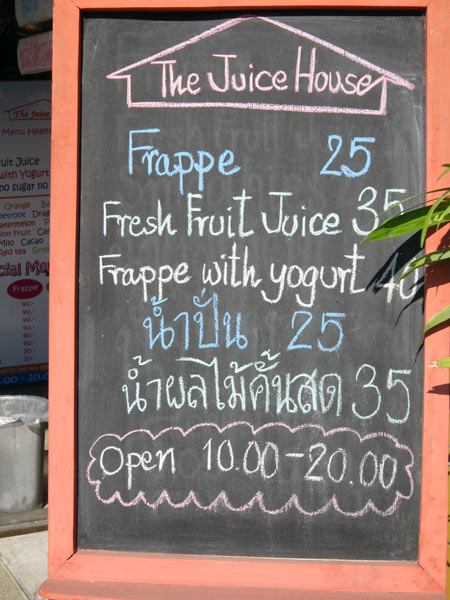 The Juice House
Frappe 25
Fresh Fruit Juice 35
Frappe with yogurt 40
น้ำปั่น 25
น้ำผลไม้คั้นสด 35
Open 10.00-20.00
The Juice
Menu Health
Juice
with Yogurt
no sugar no
Orange
Milo Cacao
Red tea
Frappe
40.-
40.-
40.-